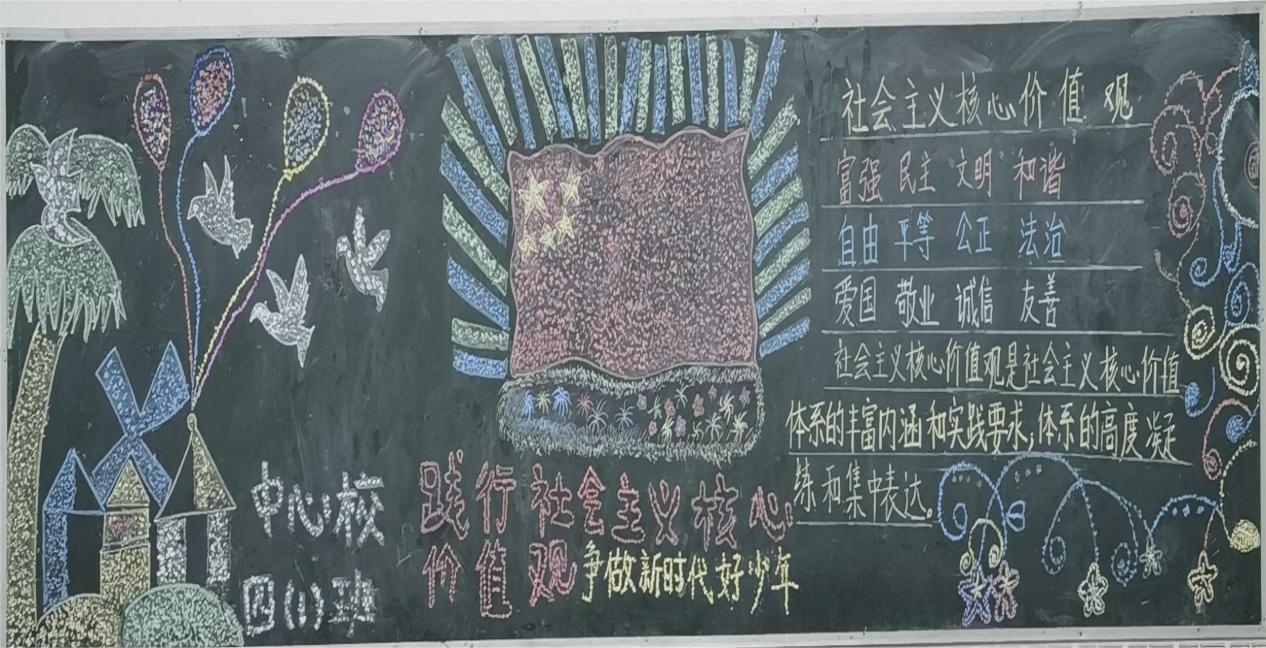 中心校
四(1)班
践行社会主义核心
价值观争做新时代好少年
社会主义核心价值观
富强 民主 文明 和谐
自由 平等 公正 法治
爱国 敬业 诚信 友善
社会主义核心价值观是社会主义核心价值
体系的丰富内涵和实践要求,体系的高度凝
练和集中表达。